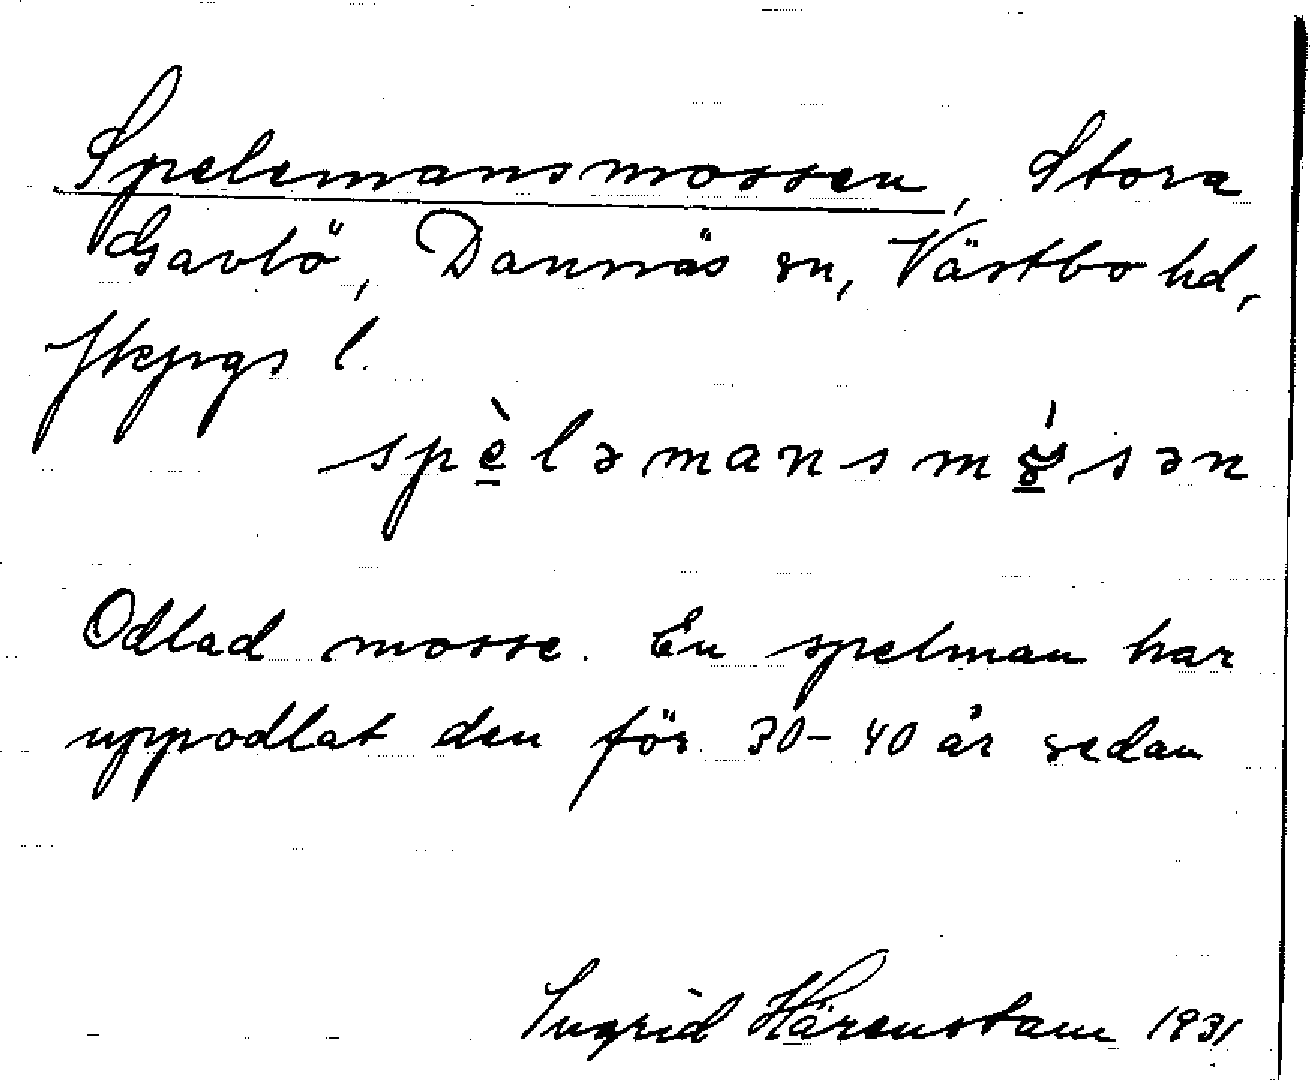 Spelemansmossen, Stora
Gavlö, Dannäs sn, Västbo hd,
Jkpgs l.
spèləmansmósən
Odlad mosse. En spelman har
uppodlat den för 30-40 år sedan
Ingrid Härenstam 1931